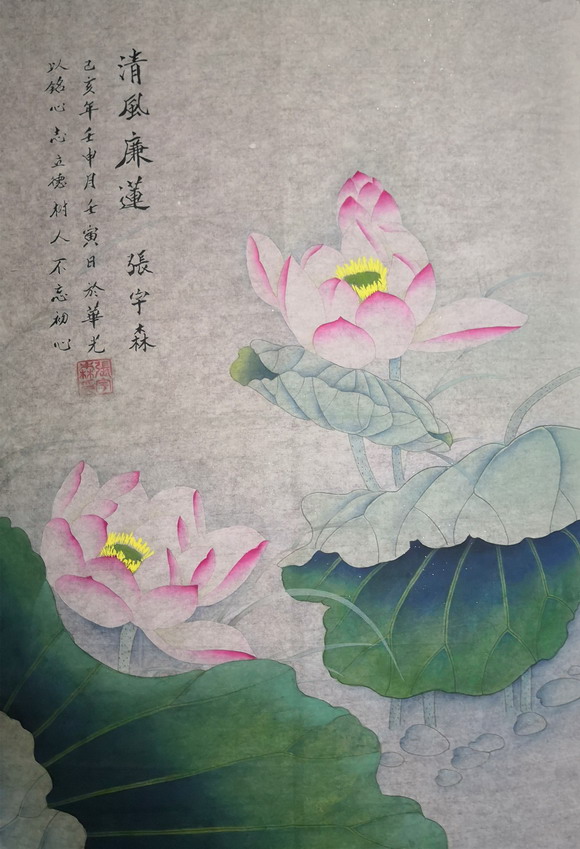 清風廉蓮 張宇森
己亥年壬申月壬寅日於華光
以銘心志立德树人不忘初心
張宇森印